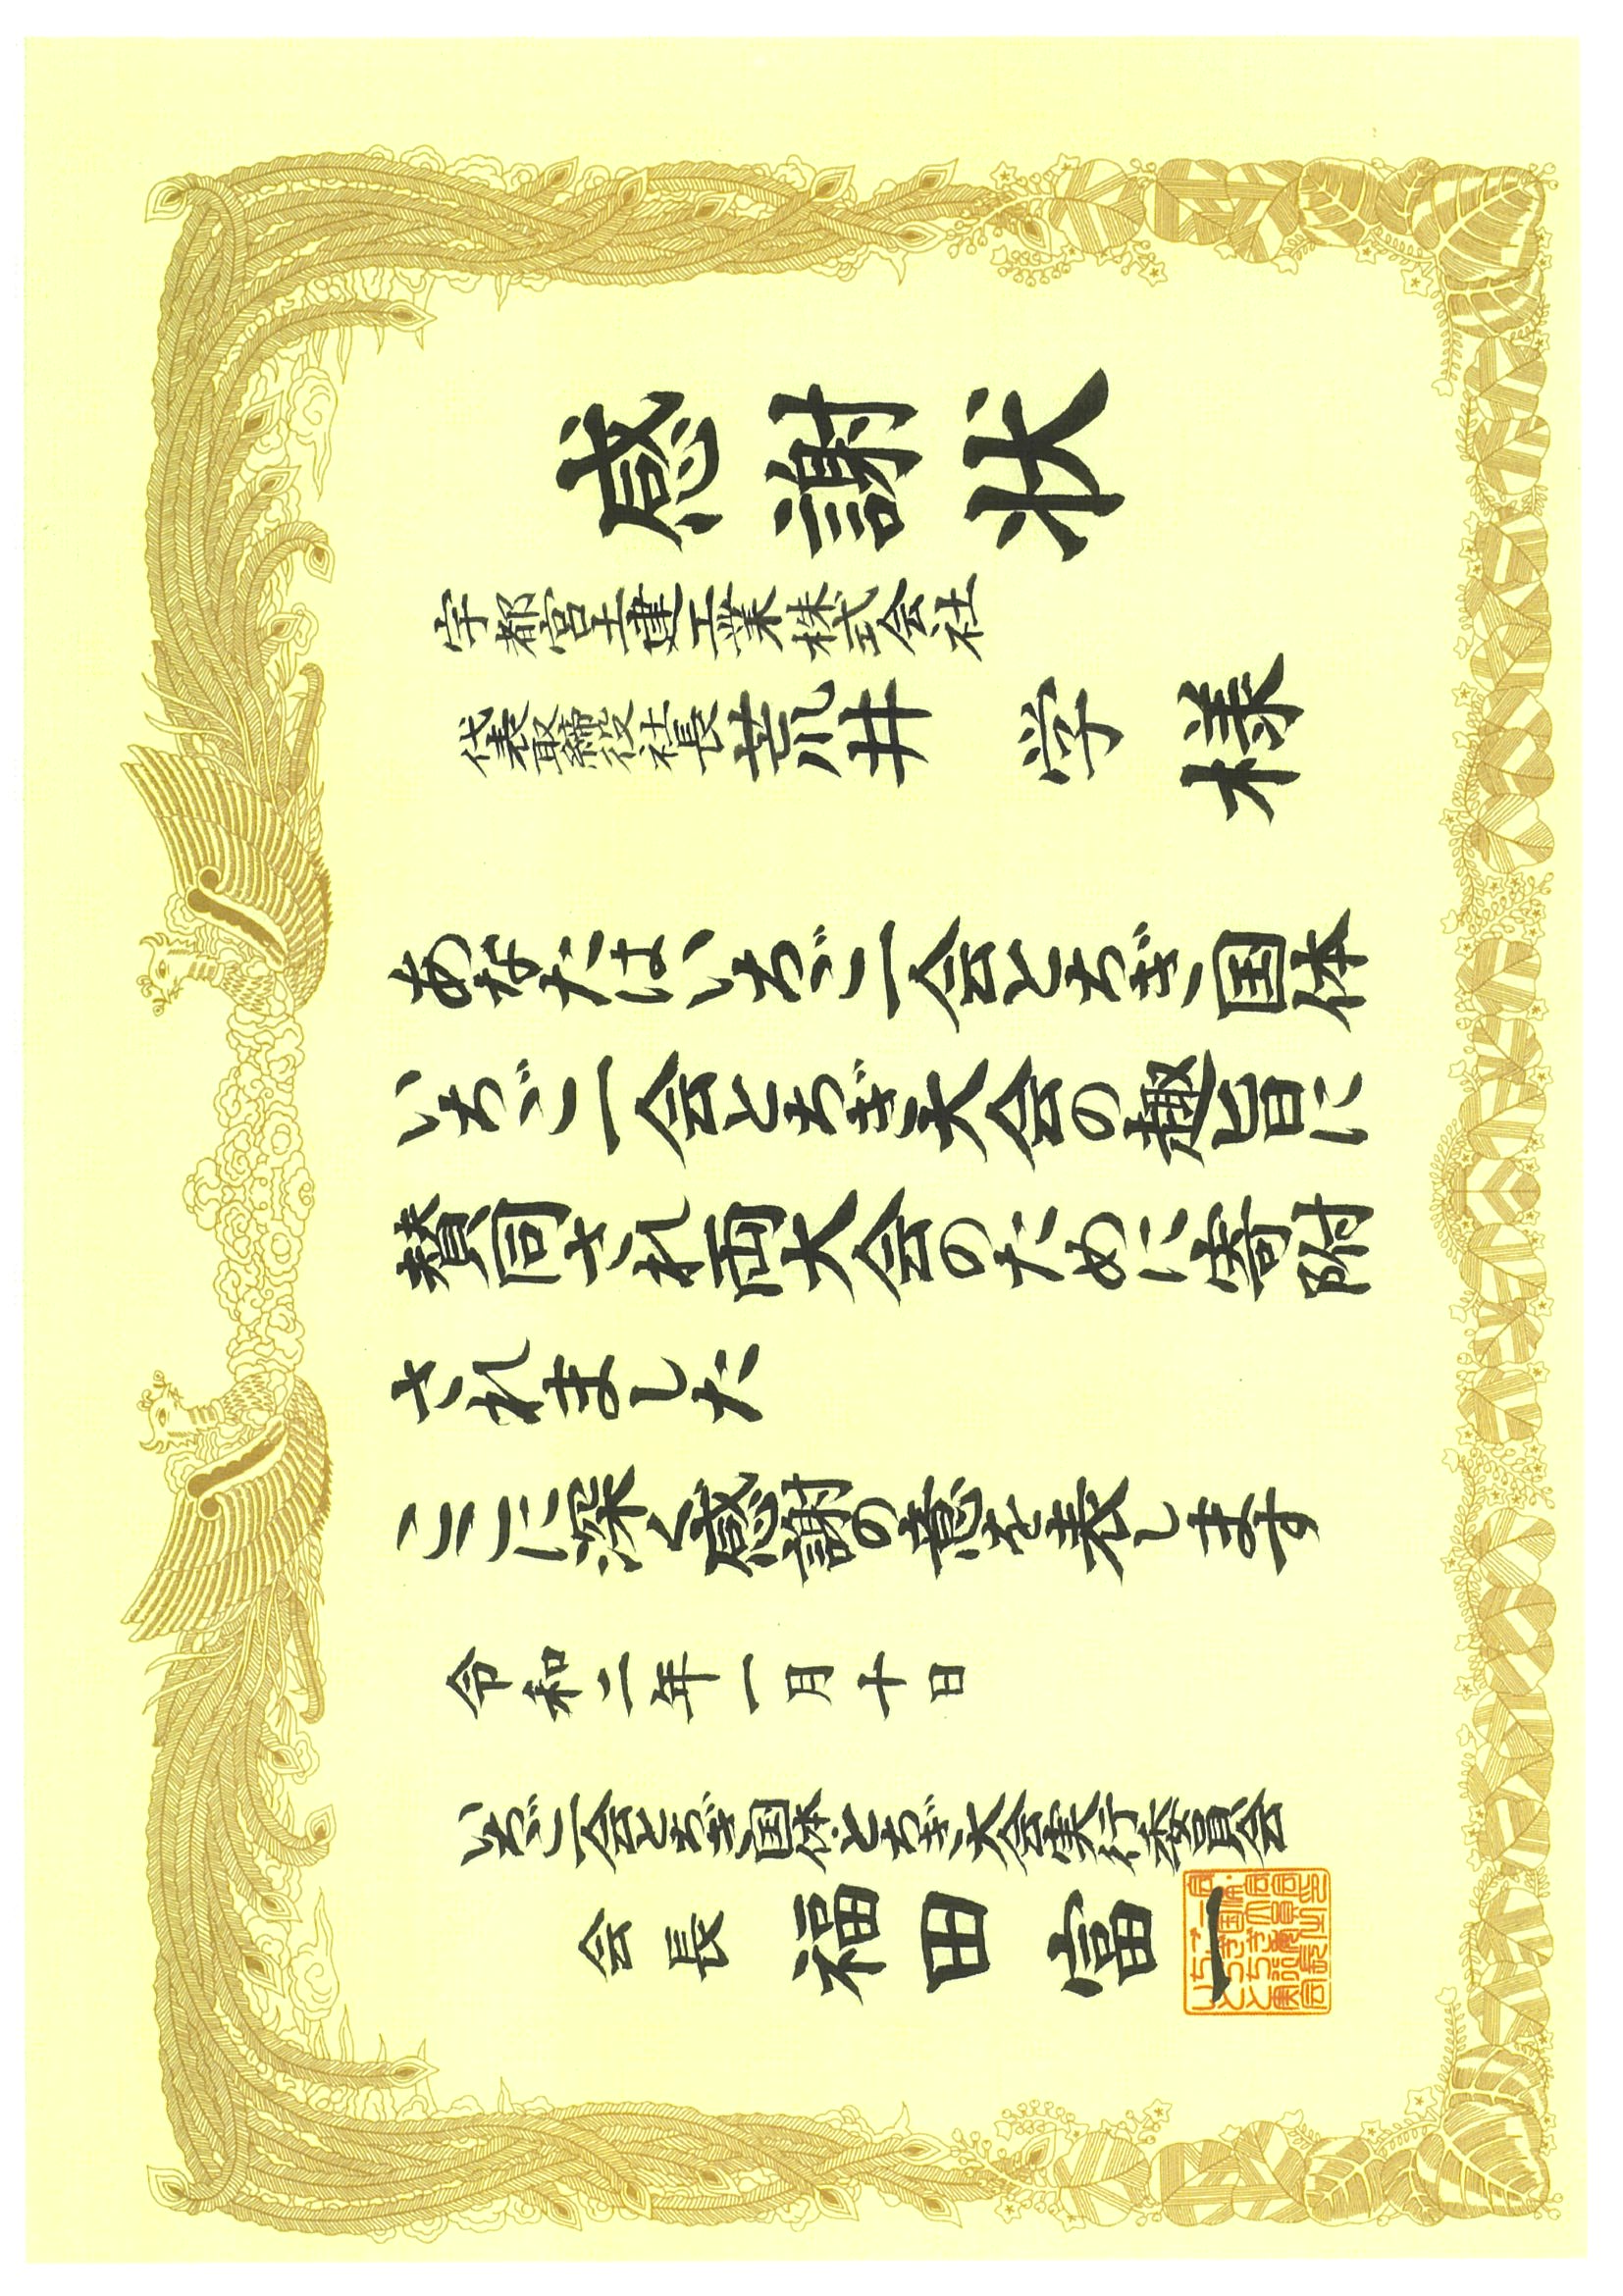 感謝状
宇都宮土建工業株式会社
代表取締役社長 荒井 学 様
あなたはいちご一会とちぎ国体
いちご一会とちぎ大会の趣旨に
賛同され両大会のために寄附
されました
ここに深く感謝の意を表します
令和二年一月十日
いちご一会とちぎ国体・とちぎ大会実行委員会
会長 福田富一